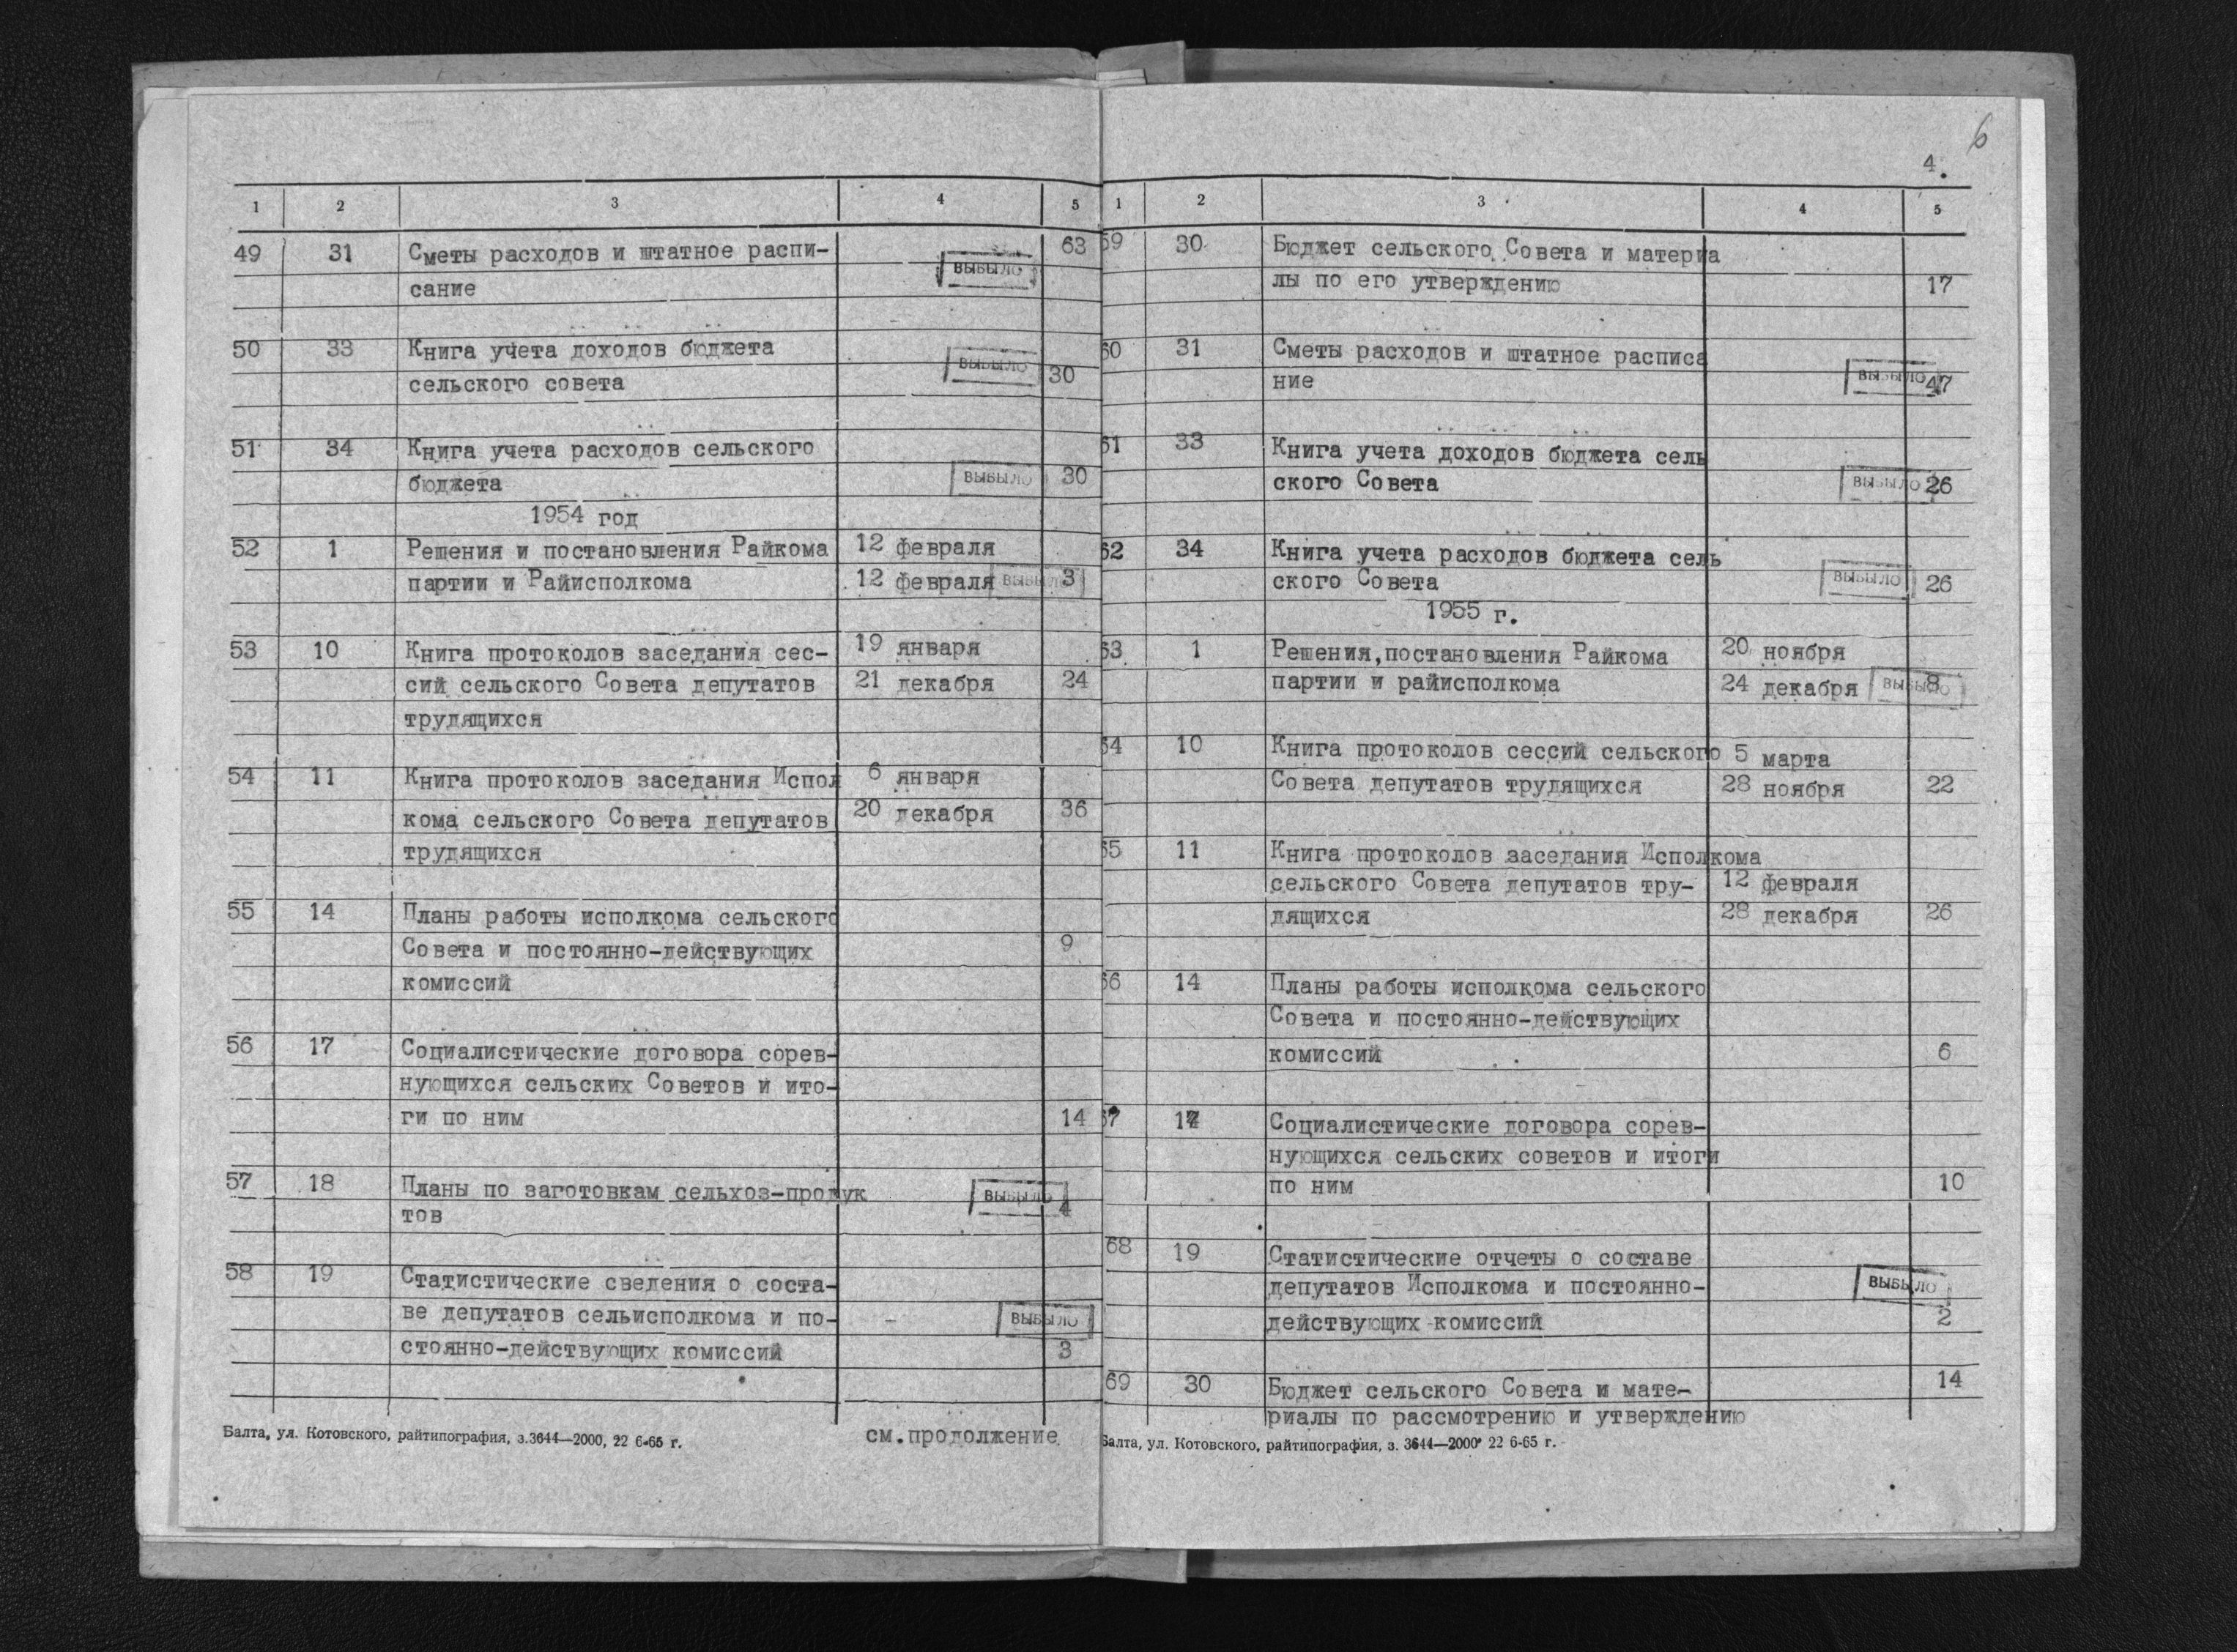 1 2 3 4 5
49 31 Сметы расходов и штатное распи- 63
сание ВЫБЫЛО
50 33 Книга учета доходов бюджета ВЫБЫЛО
сельского совета 30
51 34 Книга учета расходов сельского
бюджета ВЫБЫЛО 30
1954 год
52 1 Решения и постановления Райкома 12 февраля
партии и Райисполкома 12 февраля ВЫБЫЛО 3
53 10 Книга протоколов заседания сес- 19 января
сий сельского Совета депутатов 21 декабря 24
трудящихся
54 11 Книга протоколов заседания Испол 6 января
кома сельского Совета депутатов 20 декабря 36
трудящихся
55 14 Планы работы исполкома сельского
Совета и постоянно-действующих 9
комиссий
56 17 Социалистические договора сорев-
нующихся сельских Советов и ито-
ги по ним 14
57 18 Планы по заготовкам сельхоз-продук ВЫБЫЛО
тов 4
58 19 Статистические сведения о соста-
ве депутатов сельисполкома и по- ВЫБЫЛО
стоянно-действующих комиссий 3
см.продолжение
Балта, ул. Котовского, райтипография, з.3644—2000, 22 6-65 г.
6
4.
1 2 3 4 5
59 30 Бюджет сельского Совета и материа
лы по его утверждению 17
60 31 Сметы расходов и штатное расписа
ние ВЫБЫЛО 47
61 33 Книга учета доходов бюджета сель
ского Совета ВЫБЫЛО 26
62 34 Книга учета расходов бюджета сель
ского Совета ВЫБЫЛО 26
1955 г.
63 1 Решения,постановления Райкома 20 ноября
партии и райисполкома 24 декабря ВЫБЫЛО 8
64 10 Книга протоколов сессий сельского 5 марта
Совета депутатов трудящихся 28 ноября 22
65 11 Книга протоколов заседания Исполкома
сельского Совета депутатов тру- 12 февраля
дящихся 28 декабря 26
66 14 Планы работы исполкома сельского
Совета и постоянно-действующих
комиссий 6
67 17 Социалистические договора сорев-
нующихся сельских советов и итоги
по ним 10
68 19 Статистические отчеты о составе
депутатов Исполкома и постоянно- ВЫБЫЛО
действующих комиссий 2
69 30 Бюджет сельского Совета и мате- 14
риалы по рассмотрению и утверждению
Балта, ул. Котовского, райтипография, з. 3644—2000 22 6-65 г.